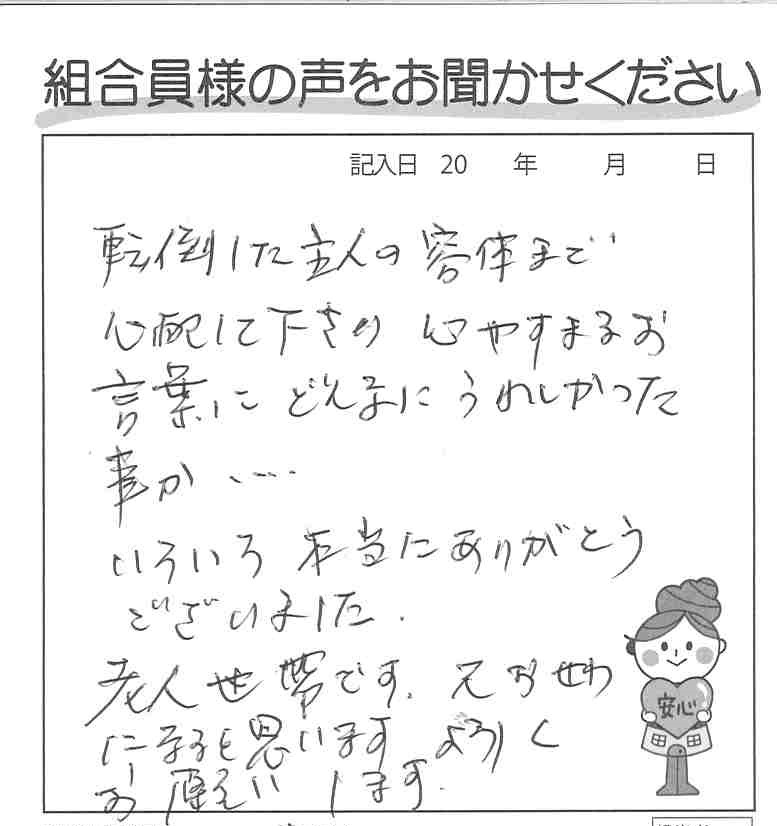 組合員様の声をお聞かせください
記入日 20 年 月 日
転倒した主人の容体まで
心配して下さり 心やすまるお
言葉に どんなに うれしかった
事か ‥‥
いろいろ 本当にありがとう
ございました.
老人世帯です. 又おせわ
になると思います よろしく
お願い します.
安心